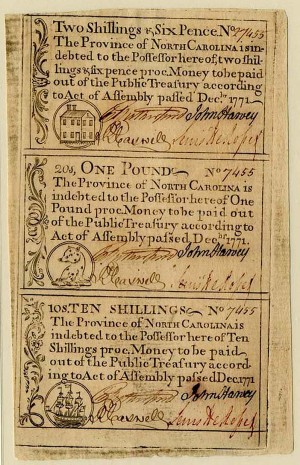 Two Shillings & Six Pence. No 7455
The Province of NORTH CAROLINA is in-
debted to the Possessor here of, two shil-
lings & six pence proc. Money to be paid
out of the Public Treasury according
to Act of Assembly passed Decr. 1771
John Harvey
R Caswell Lewis De Rosset
20s, ONE POUND No 7455
The Province of NORTH CAROLINA is
indebted to the Possessor here of One
Pound proc. Money to be paid out
of the Public Treasury according to
Act of Assembly passed, Decr. 1771.
John Harvey
R Caswell Lewis De Rosset
10s, TEN SHILLINGS No 7455
The Province of NORTH CAROLINA is
indebted to the Possessor here of Ten
Shillings proc. Money to be paid
out of the Public Treasury accord-
ing to Act of Assembly passed Dec. 1771
John Harvey
R Caswell Lewis De Rosset